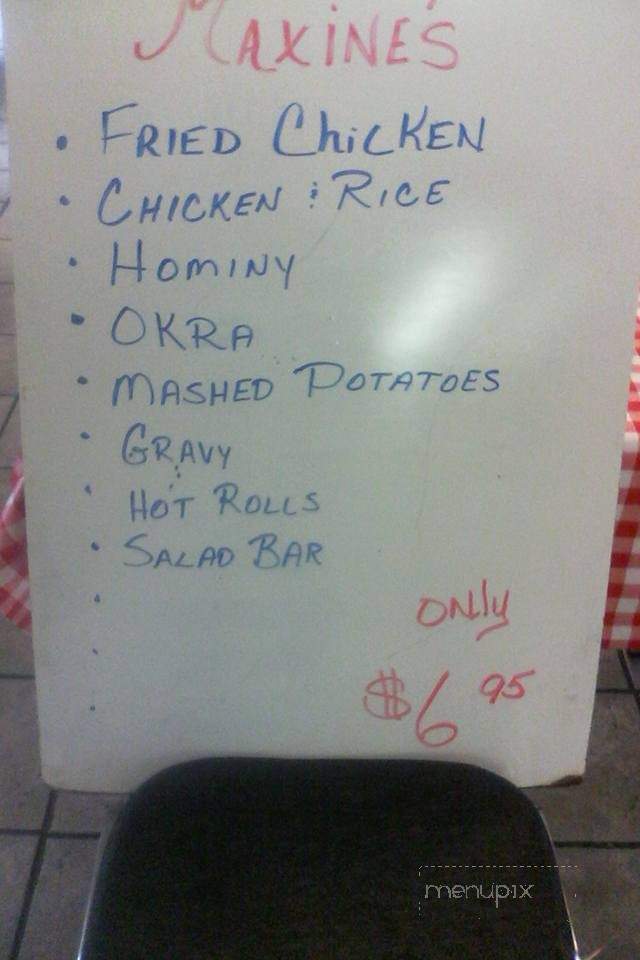 MAXINE'S
• FRIED ChiCKEN
• CHICKEN & RICE
• HOMINY
• OKRA
• MASHED POTATOES
• GRAVY
• HOT ROLLS
• SALAD BAR
•
•
•
ONly
$6 95
menupix